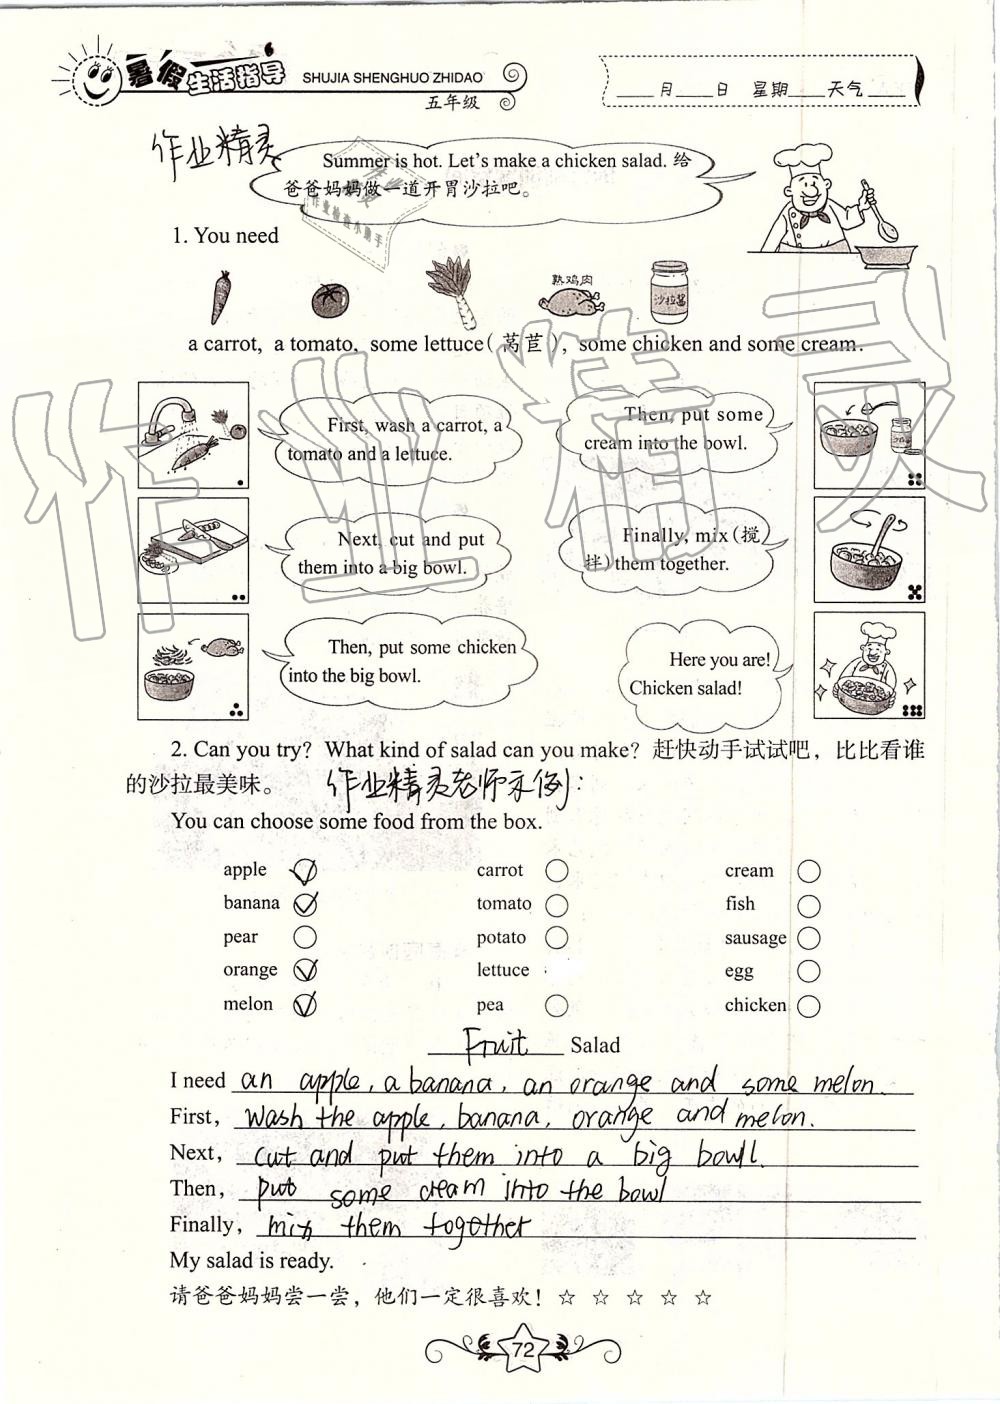 暑假生活指导
SHUJIA SHENGHUO ZHIDAO
五年级
____月____日 星期____天气____
作业精灵
Summer is hot. Let's make a chicken salad. 给
爸爸妈妈做一道开胃沙拉吧。
作业
精灵
作业检查小助手
1. You need
熟鸡肉
沙拉酱
a carrot, a tomato, some lettuce(莴苣), some chicken and some cream.
作业精灵
First, wash a carrot, a
tomato and a lettuce.
Then, put some
cream into the bowl.
Next, cut and put
them into a big bowl.
Finally, mix(搅
拌)them together.
Then, put some chicken
into the big bowl.
Here you are!
Chicken salad!
2. Can you try? What kind of salad can you make? 赶快动手试试吧，比比看谁
的沙拉最美味。 作业精灵老师示例:
You can choose some food from the box.
apple carrot cream
banana tomato fish
pear potato sausage
orange lettuce egg
melon pea chicken
Fruit Salad
I need an apple, a banana, an orange and some melon.
First, wash the apple, banana, orange and melon.
Next, cut and put them into a big bowll.
Then, put some cream into the bowl
Finally, mix them together
My salad is ready.
请爸爸妈妈尝一尝，他们一定很喜欢！☆ ☆ ☆ ☆ ☆
72